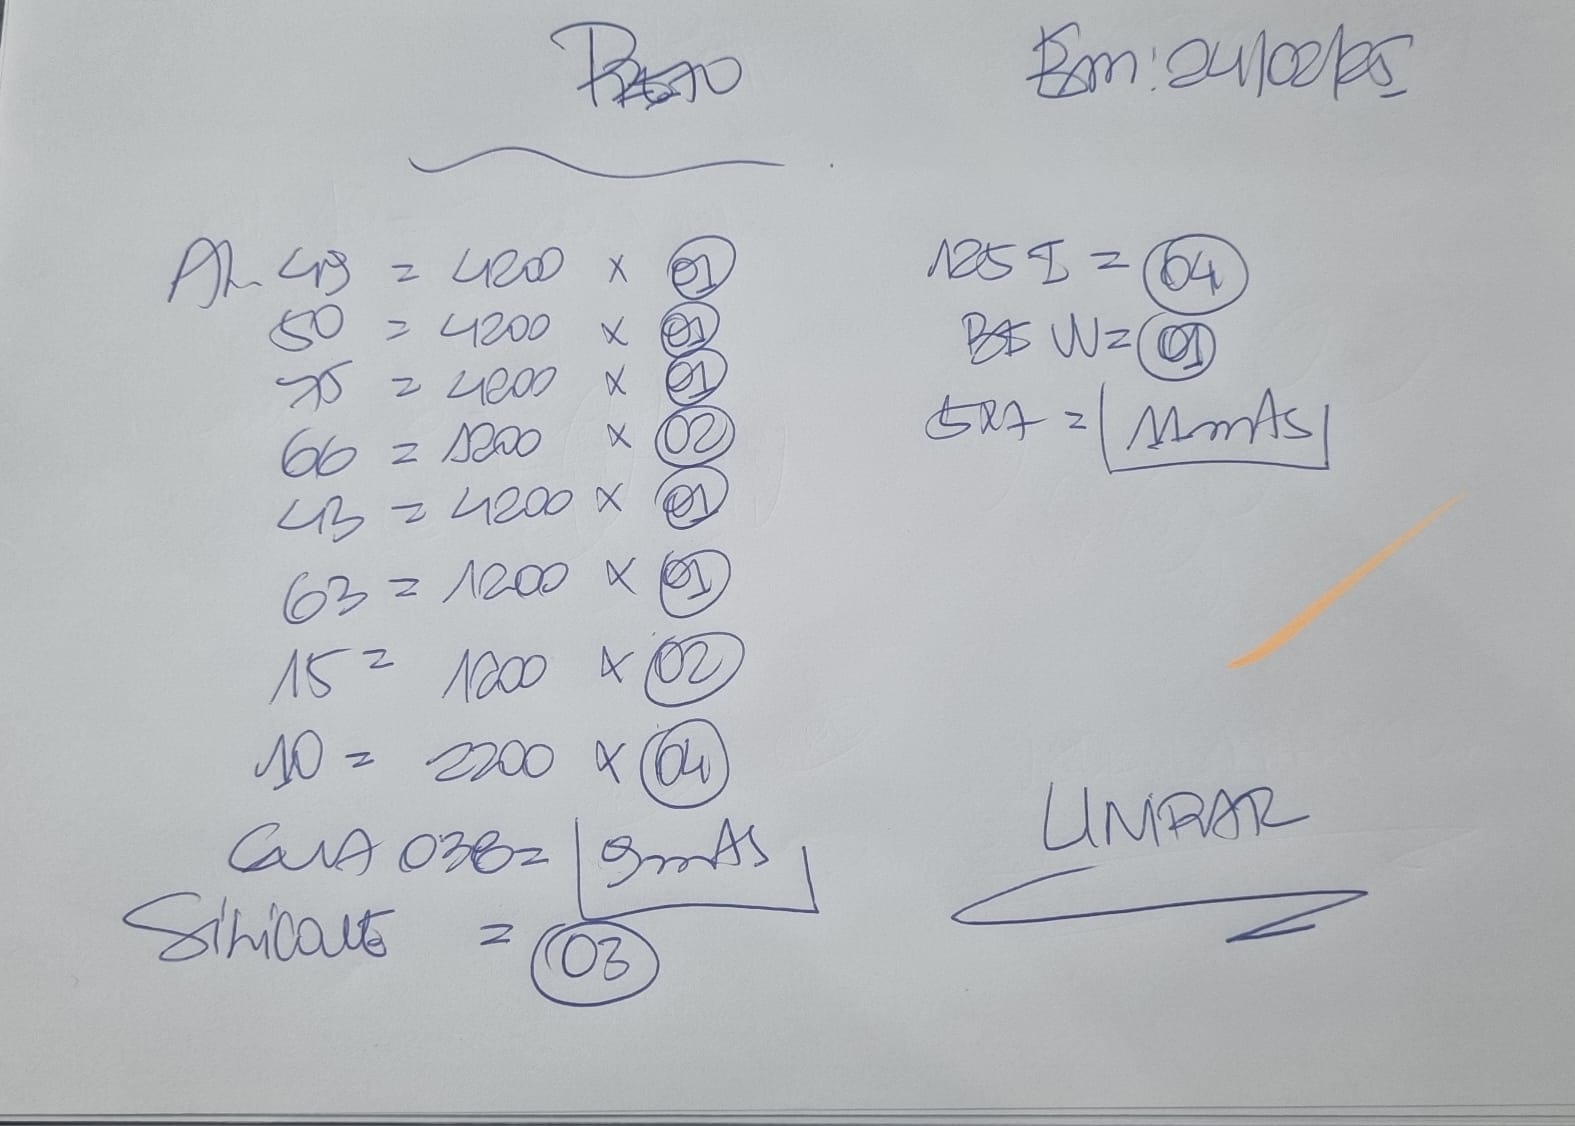 Em: 24/02/25
AL 49 = 4200 x 01
50 = 4200 x 01
75 = 4200 x 01
66 = 1200 x 02
43 = 4200 x 01
63 = 1200 x 01
15 = 1200 x 02
10 = 2200 x 04
038 = 9mtAS
Silicone = 03
125 I = 04
W = 01
527 = 11mtAs
UNIPAR